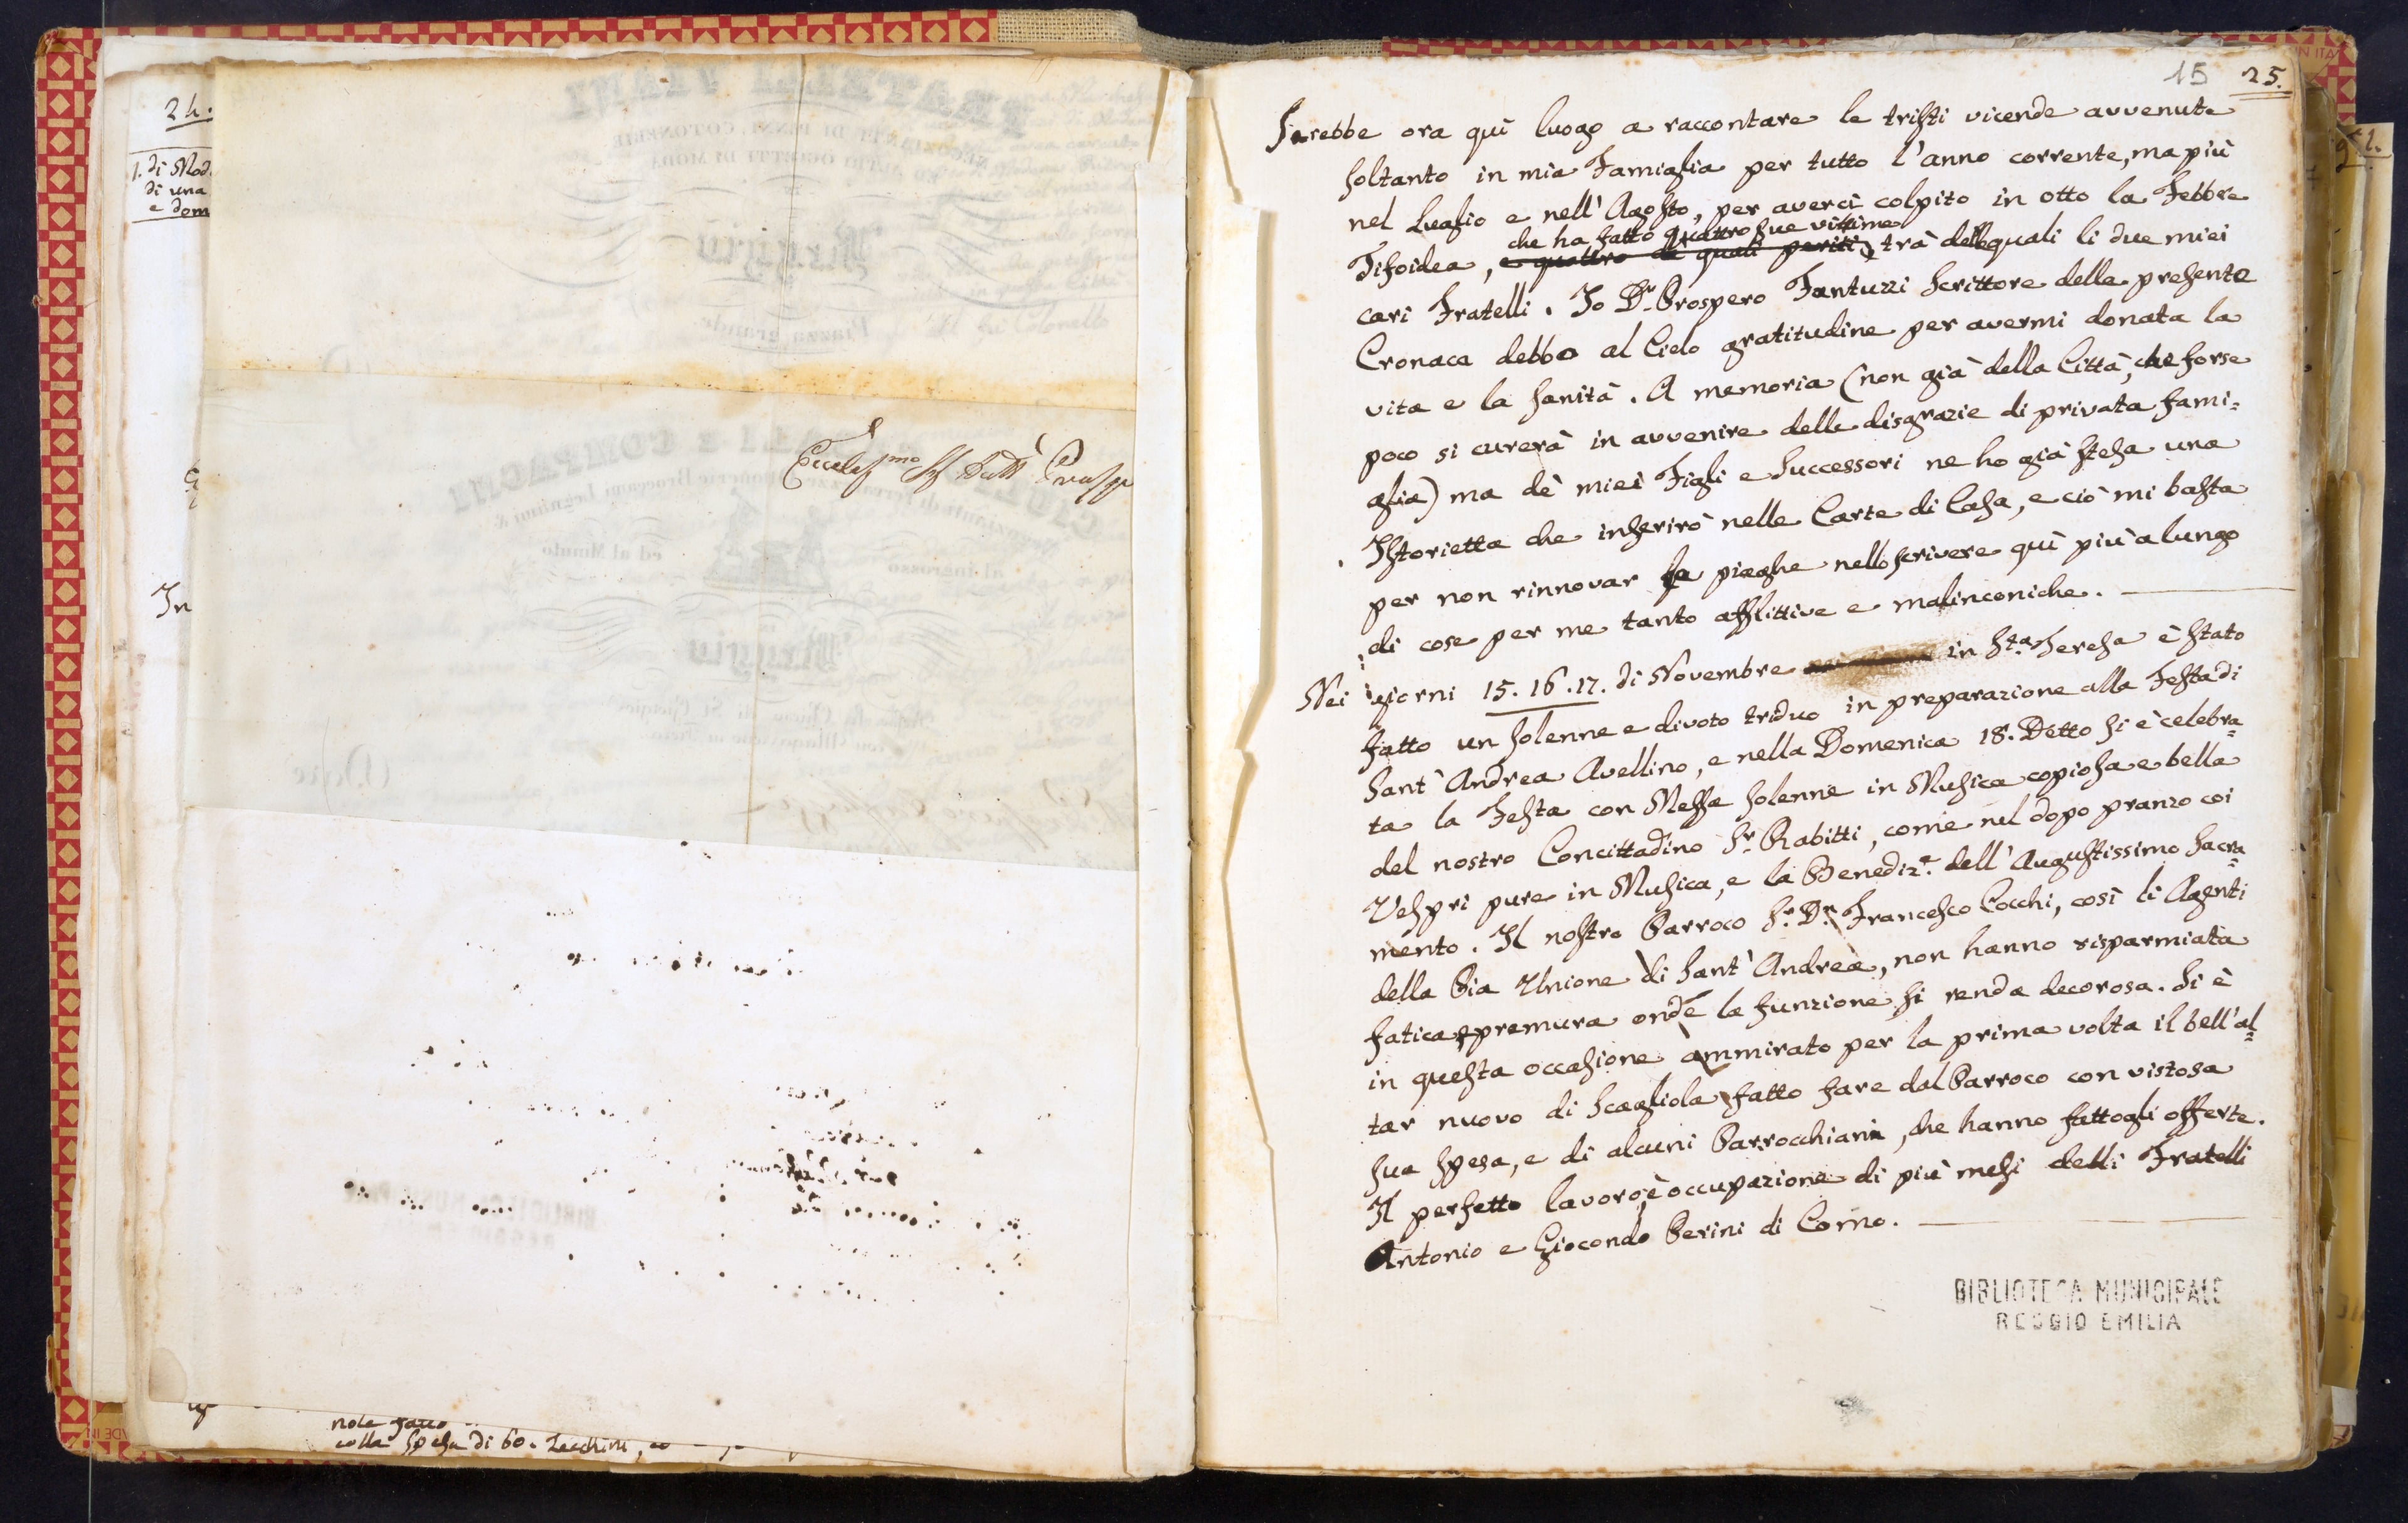 24.
1. di Mod.
di una
e dom
In
Piazza grande
Reggio
ed al Minuto
all'ingrosso
Reggio
Eccelmo Sig Dott Prosp
note fatto
colla spesa di 60. Zecchini, co
15 25.
Sarebbe ora quì luogo a raccontare le tristi vicende avvenute
soltanto in mia Famiglia per tutto l'anno corrente, ma più
nel Luglio e nell'Agosto, per averci colpito in otto la Febbre
che ha fatto quattro sue vittime
Tifoidea, e quattro de quali periti, trà delle quali li due miei
cari Fratelli. Io Dr. Prospero Fantuzzi Scrittore della presente
Cronaca debbo al Cielo gratitudine per avermi donata la
vita e la sanità. A memoria (non già della Città, che forse
poco si curerà in avvenire delle disgrazie di privata fami=
glia) ma dè miei Figli e Successori ne ho già stesa una
Istorietta che inserirò nelle Carte di Casa, e ciò mi basta
per non rinnovar la piaghe nello scrivere quì più a lungo
di cose per me tanto afflittive e malinconiche.
Nei giorni 15. 16. 17. di Novembre in Sta. Teresa è stato
fatto un solenne e divoto triduo in preparazione alla Festa di
Sant'Andrea Avellino, e nella Domenica 18. Detto si è celebra=
ta la Festa con Messa solenne in Musica copiosa e bella
del nostro Concittadino Sr. Rabitti, come nel dopo pranzo coi
Vespri pure in Musica, e la Benediz.e dell'Augustissimo Sacra=
mento. Il nostro Parroco Sr. Dn. Francesco Cocchi, così li Agenti
della Pia Unione di Sant'Andrea, non hanno risparmiata
fatica e premura onde la funzione si renda decorosa. Si è
in questa occasione ammirato per la prima volta il bell'al=
tar nuovo di Scagliola fatto fare dal Parroco con vistosa
sua spesa, e di alcuni Parrocchiani, che hanno fattogli offerte.
Il perfetto lavoro, è occupazione di più mesi delli Fratelli
Antonio e Giocondo Perini di Como.
BIBLIOTECA MUNICIPALE
REGGIO EMILIA